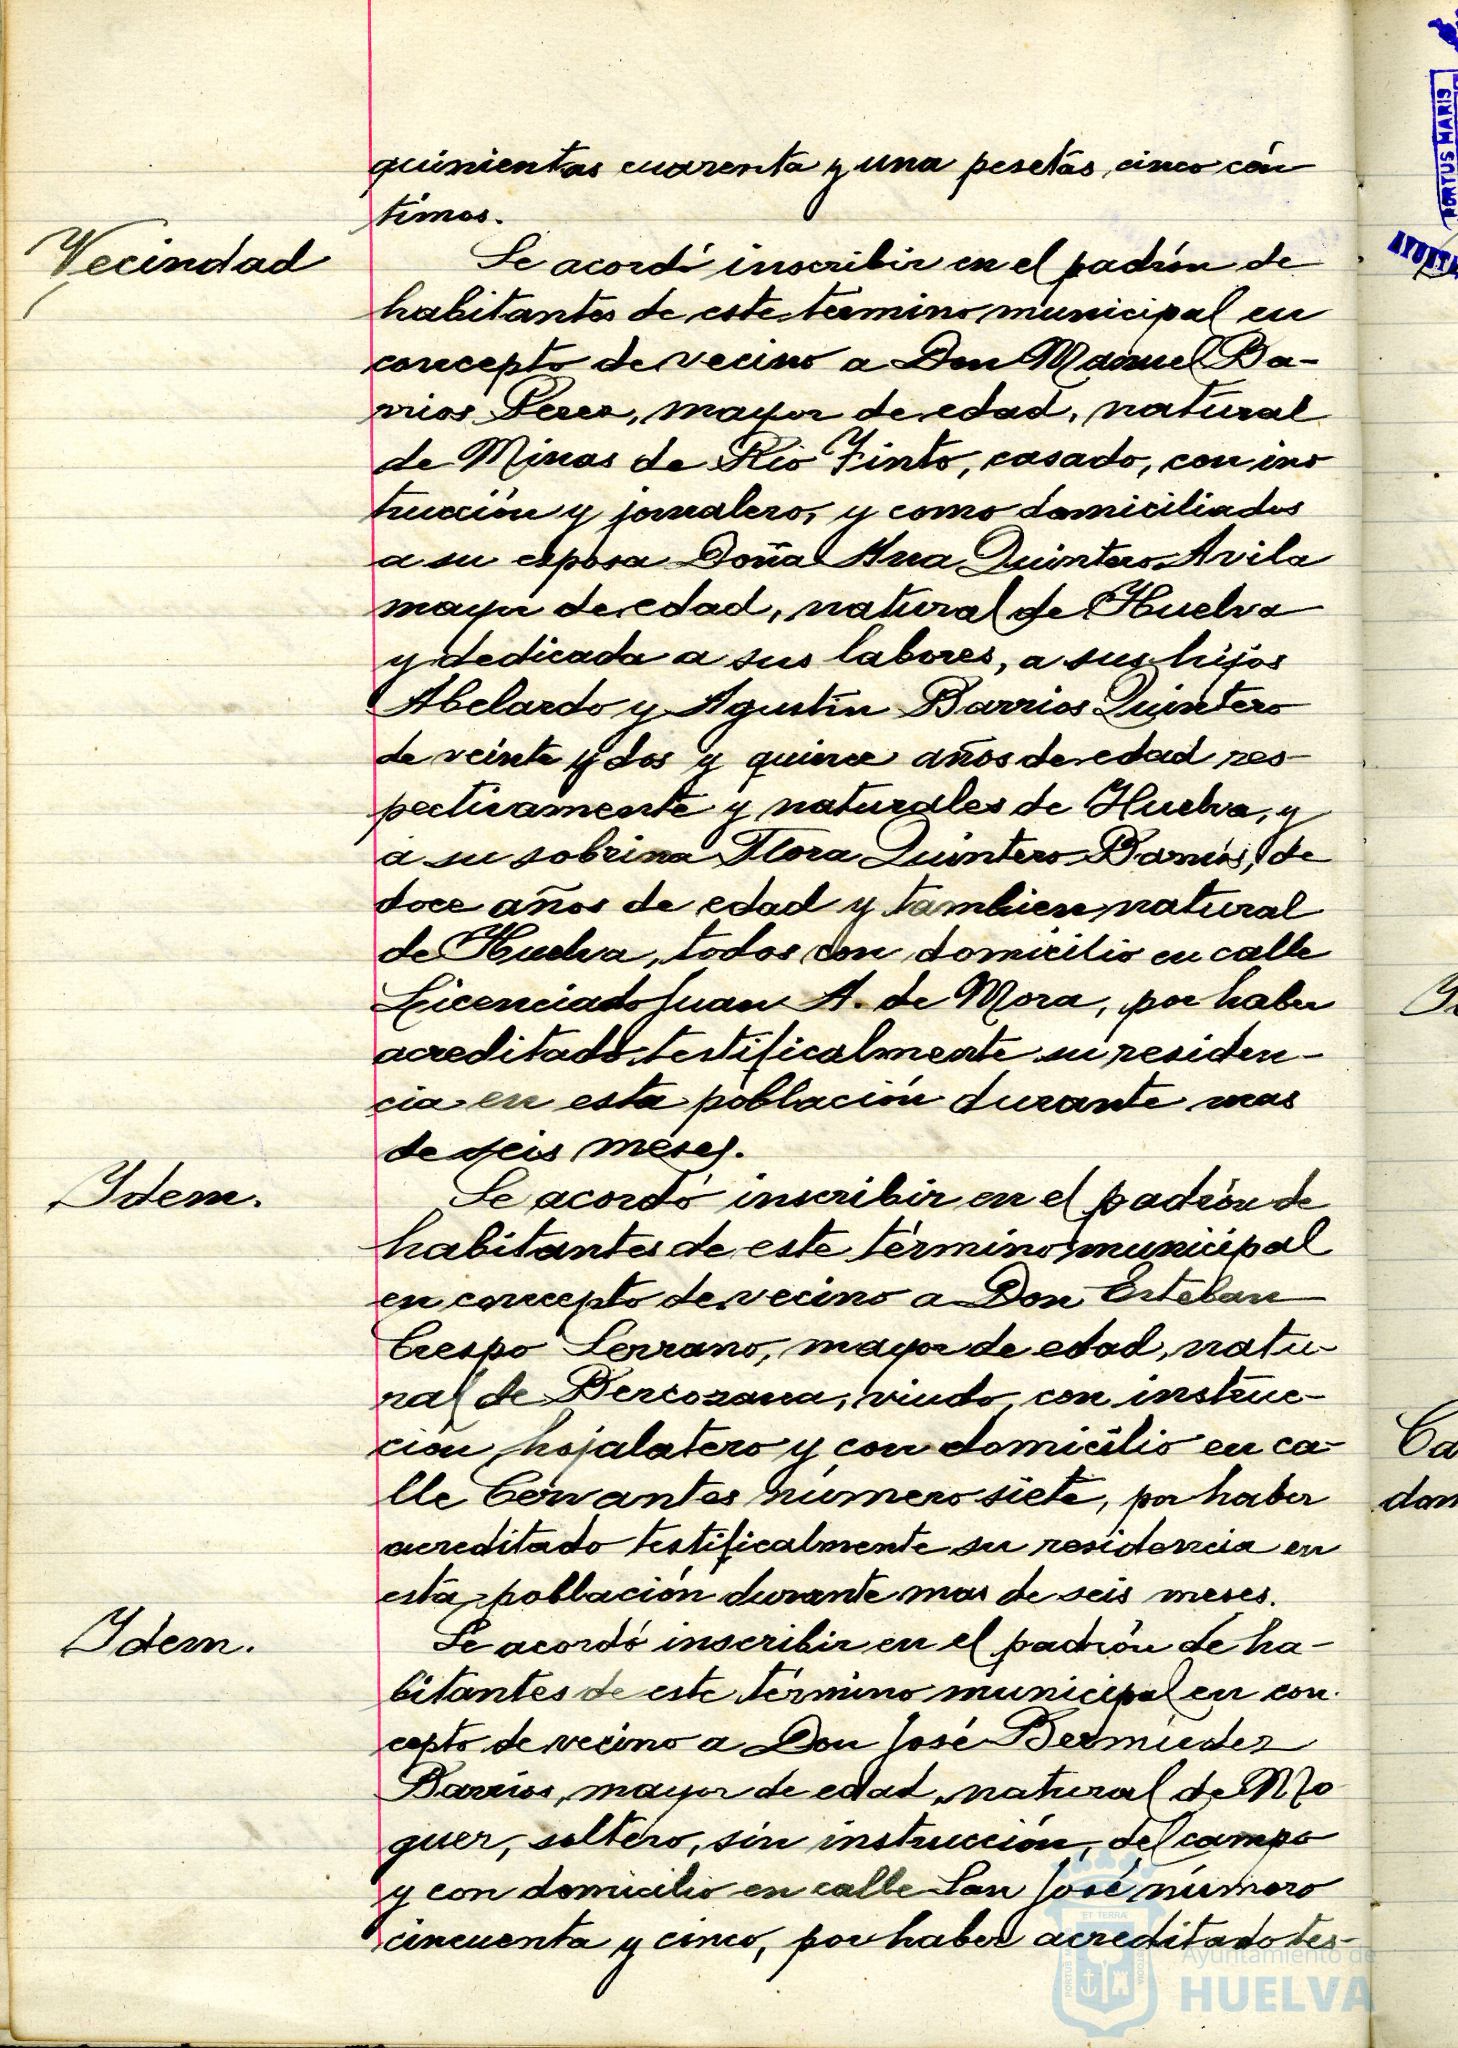 quinientas cuarenta y una pesetas, cinco cén
timos.
Vecindad
Se acordó inscribir en el padrón de
habitantes de este término municipal en
concepto de vecino a Don Manuel Ba-
rrios Perez, mayor de edad, natural
de Minas de Rio Tinto, casado, con ins
trucción y jornalero, y como domiciliados
a su esposa Doña Ana Quintero Avila
mayor de edad, natural de Huelva
y dedicada a sus labores, a sus hijos
Abelardo y Agustín Barrios Quintero
de veinte y dos y quince años de edad res-
pectivamente y naturales de Huelva, y
a su sobrina Flora Quintero Barrios, de
doce años de edad y tambien natural
de Huelva, todos con domicilio en calle
Licenciado Juan A. de Mora, por haber
acreditado testificalmente su residen-
cia en esta población durante mas
de seis meses.
Idem.
Se acordó inscribir en el padrón de
habitantes de este término municipal
en concepto de vecino a Don Esteban
Crespo Serrano, mayor de edad, natu-
ral de Bercozana, viudo, con instruc-
ción, hojalatero y con domicilio en ca-
lle Cervantes número siete, por haber
acreditado testificalmente su residencia en
esta población durante mas de seis meses.
Idem.
Se acordó inscribir en el padrón de ha-
bitantes de este término municipal en con-
cepto de vecino a Don José Bermúdez
Barrios, mayor de edad, natural de Mo
guer, soltero, sin instrucción, del campo
y con domicilio en calle San José número
cincuenta y cinco, por haber acreditado tes-
PORTUS MARIS
AYUNTA
Ca
dom
ET TERRA
Ayuntamiento de
HUELVA